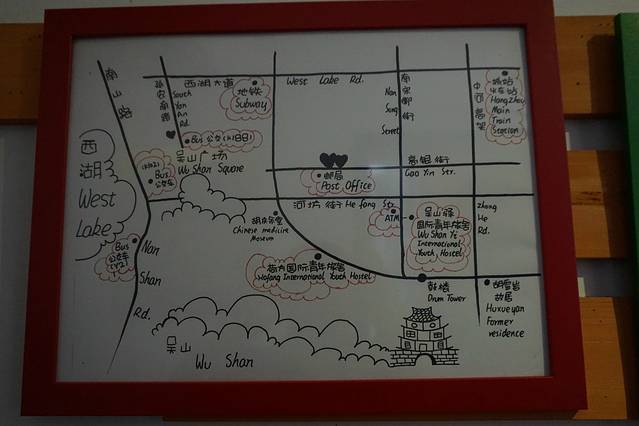 南山路
西湖大道
West Lake Rd.
延安南路
South
Yan
An
Rd.
地铁
Subway
Nan
Song
Street
南宋御街
中河高架
城站
火车站
Hangzhou
Main
Train
Station
Bus 公交
吴山广场
Wu Shan Square
Bus
公交车
西
湖
West
Lake
邮局
Post Office
高银街
Gao Yin Str.
河坊街 He fang Str.
ATM
吴山驿
国际青年旅舍
Wu Shan Yi
International
Youth Hostel
Zhong
He
Rd.
Chinese medicine
Museum
Bus
公交车
(Y2)
Nan
Shan
Rd.
荷方国际青年旅舍
Hofang International Youth Hostel
鼓楼
Drum Tower
胡雪岩
故居
Huxueyan
Former
residence
吴山
Wu Shan